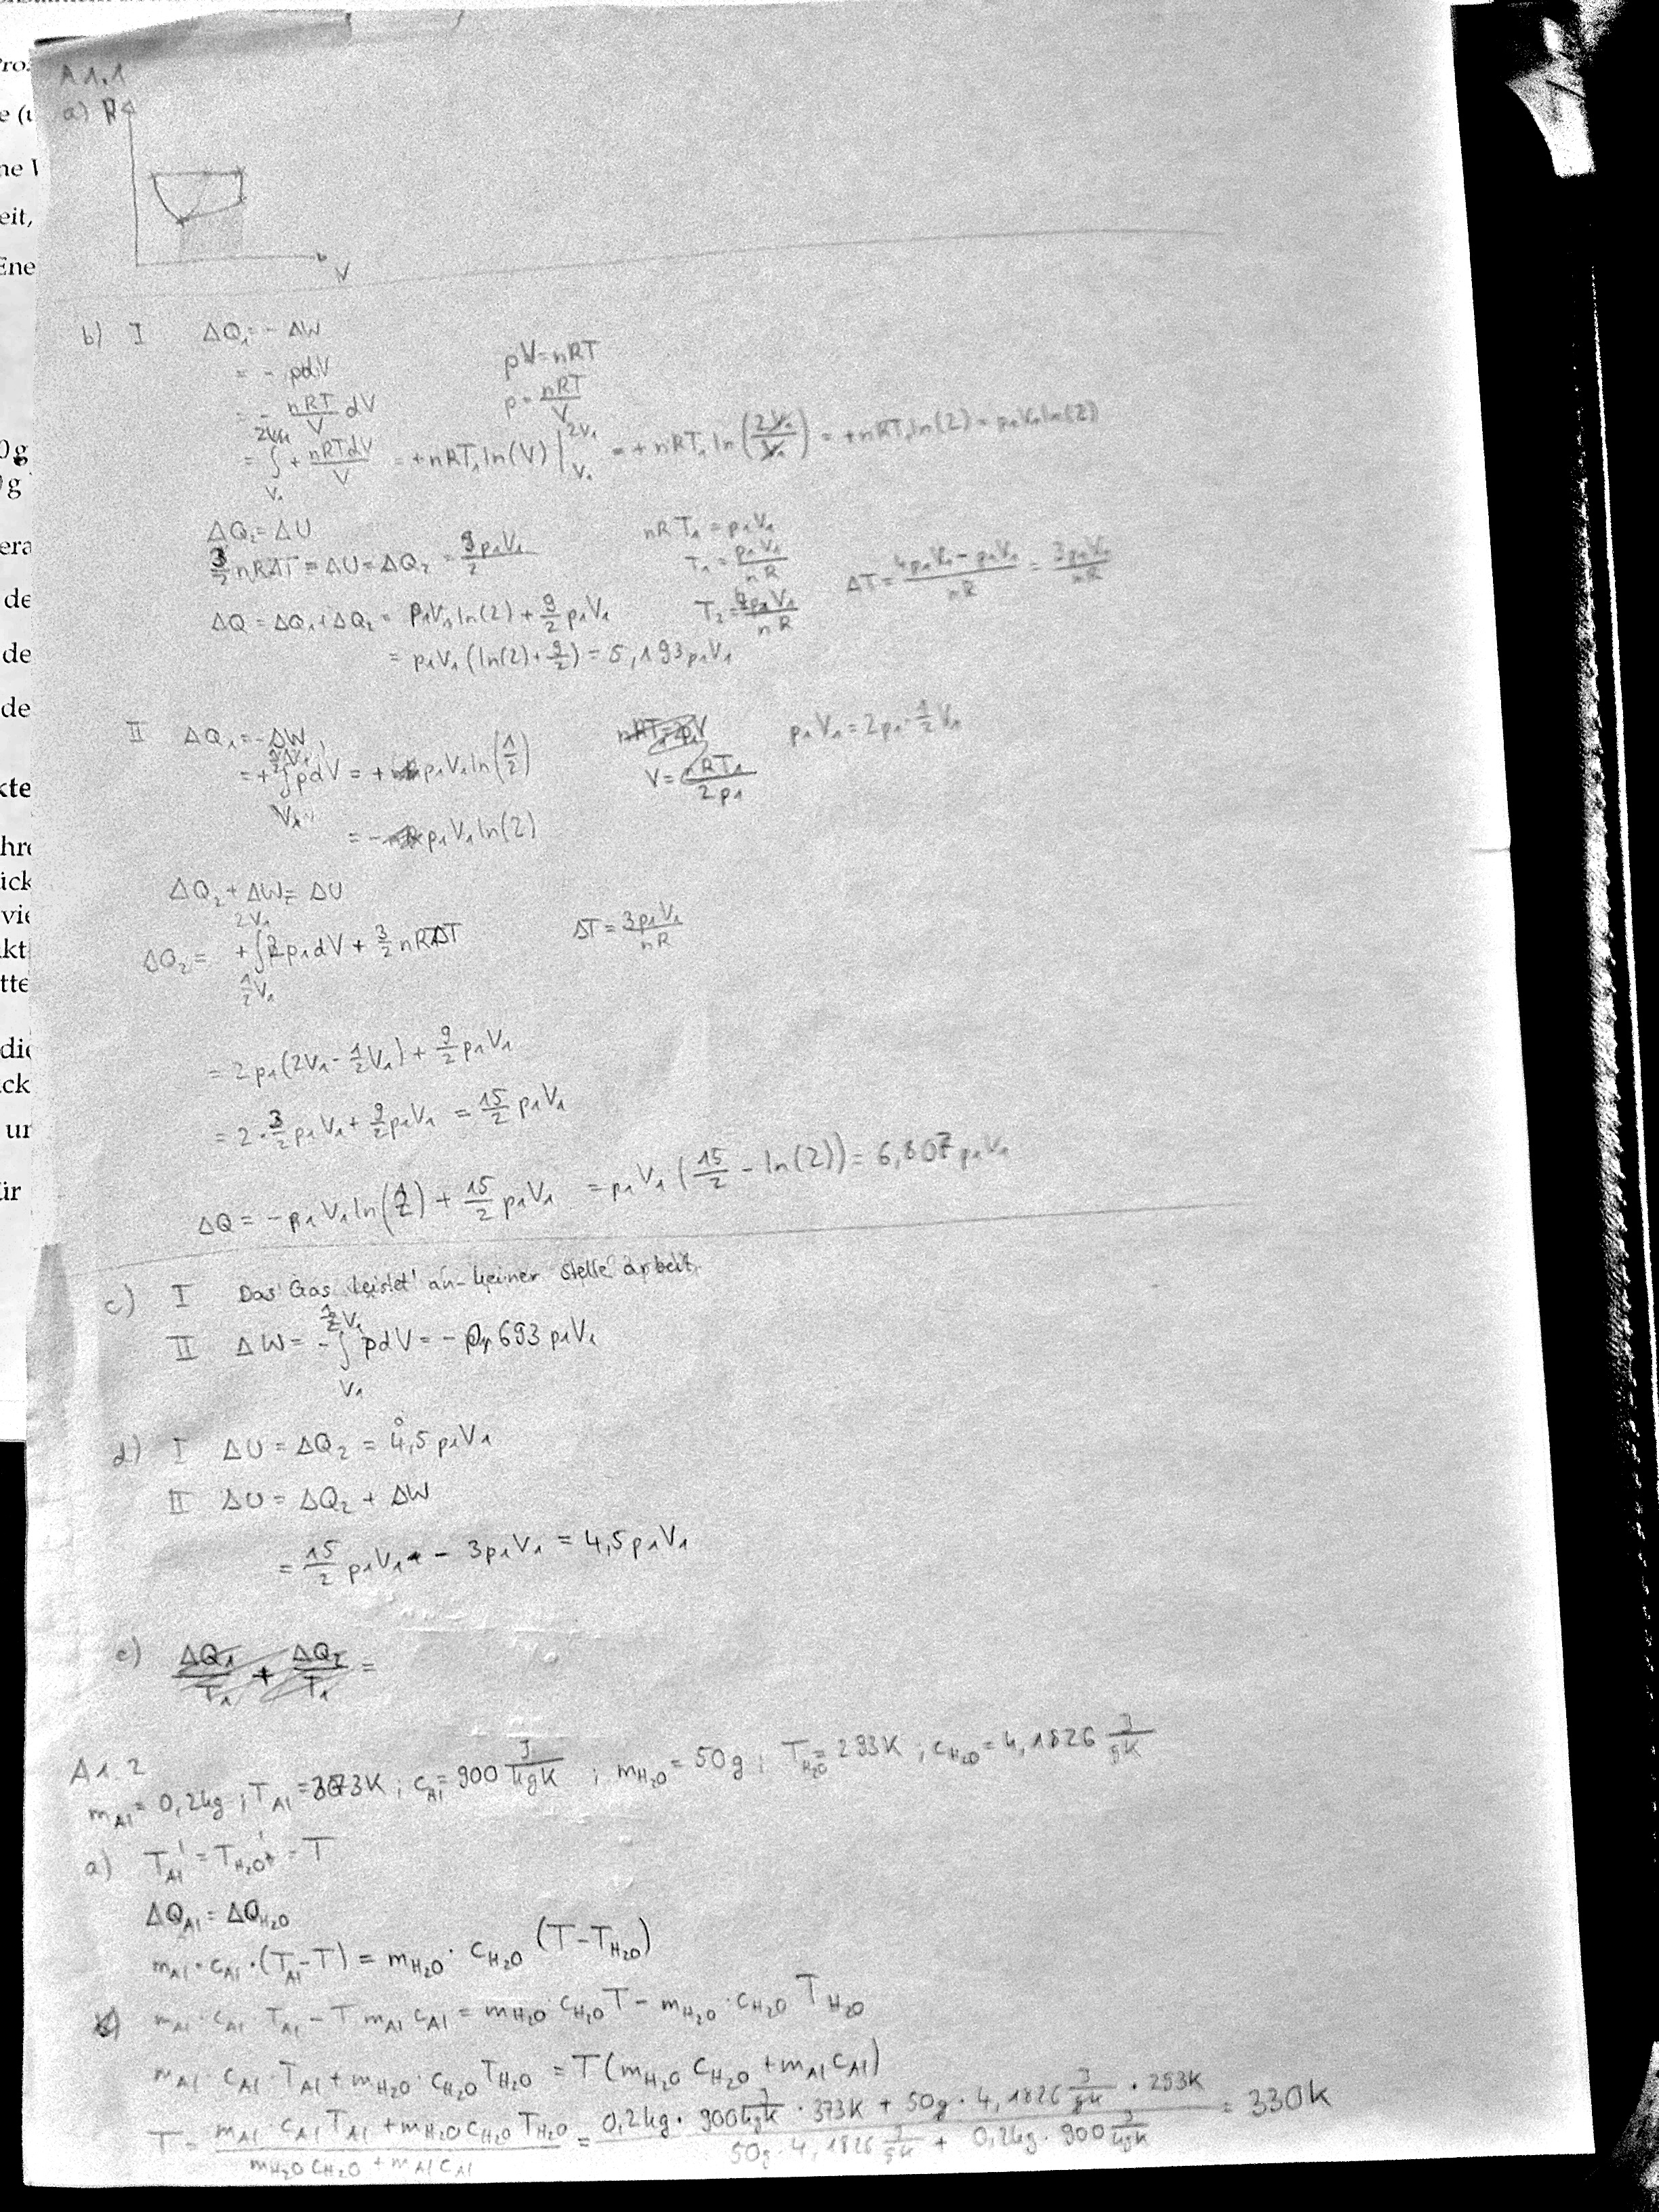 A1.1
a) p
V
b) I ΔQ₁ = - ΔW
= - pdV
pV = nRT
= - nRT/V dV
p = nRT/V
= ∫_{V₁}^{2V₁} + nRTdV/V = + nRT₁ ln(V) |_{V₁}^{2V₁} = + nRT₁ ln(2V₁/V₁) = + nRT₁ ln(2) = p₁V₁ ln(2)
ΔQ₂ = ΔU
nRT₁ = p₁V₁
3/2 nRΔT = ΔU = ΔQ₂ = 9/2 p₁V₁
T₁ = p₁V₁/nR
ΔT = (4p₁V₁ - p₁V₁)/nR = 3p₁V₁/nR
ΔQ = ΔQ₁ + ΔQ₂ = p₁V₁ ln(2) + 9/2 p₁V₁
T₂ = 4p₁V₁/nR
= p₁V₁ (ln(2) + 9/2) = 5,193 p₁V₁
II ΔQ₁ = - ΔW
p₁V₁ = 2p₁ · 1/2 V₁
= + ∫_{V₁}^{1/2 V₁} pdV = + p₁V₁ ln(1/2)
V = nRT₁/2p₁
= - p₁V₁ ln(2)
ΔQ₂ + ΔW = ΔU
ΔQ₂ = + ∫_{1/2 V₁}^{2V₁} 2p₁dV + 3/2 nRΔT
ΔT = 3p₁V₁/nR
= 2p₁(2V₁ - 1/2 V₁) + 9/2 p₁V₁
= 2 · 3/2 p₁V₁ + 9/2 p₁V₁ = 15/2 p₁V₁
ΔQ = - p₁V₁ ln(2) + 15/2 p₁V₁ = p₁V₁ (15/2 - ln(2)) = 6,807 p₁V₁
c) I Das Gas leistet an keiner stelle arbeit.
II ΔW = - ∫_{V₁}^{1/2 V₁} pdV = - 0,693 p₁V₁
d) I ΔU = ΔQ₂ = 4,5 p₁V₁
II ΔU = ΔQ₂ + ΔW
= 15/2 p₁V₁ - 3p₁V₁ = 4,5 p₁V₁
e) ΔQ₁/T₁ + ΔQ₂/T₁ =
A1.2
m_Al = 0,2kg ; T_Al = 373K ; c_Al = 900 J/kgK ; m_H₂O = 50g ; T_H₂O = 293K ; c_H₂O = 4,1826 J/gK
a) T_Al' = T_H₂O' = T
ΔQ_Al = ΔQ_H₂O
m_Al · c_Al · (T_Al - T) = m_H₂O · c_H₂O (T - T_H₂O)
m_Al · c_Al · T_Al - T m_Al c_Al = m_H₂O · c_H₂O T - m_H₂O · c_H₂O T_H₂O
m_Al · c_Al · T_Al + m_H₂O · c_H₂O T_H₂O = T (m_H₂O c_H₂O + m_Al c_Al)
T = (m_Al c_Al T_Al + m_H₂O c_H₂O T_H₂O)/(m_H₂O c_H₂O + m_Al c_Al) = (0,2kg · 900 J/kgK · 373K + 50g · 4,1826 J/gK · 293K)/(50g · 4,1826 J/gK + 0,2kg · 900 J/kgK) = 330K